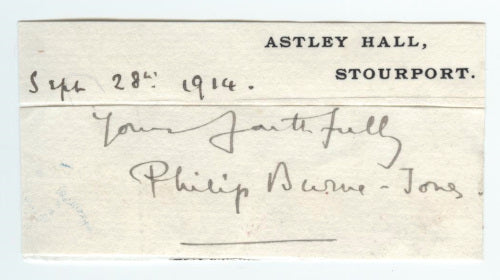 ASTLEY HALL,
STOURPORT.
Sept 28th. 1914.
Yours faithfully
Philip Burne-Jones.